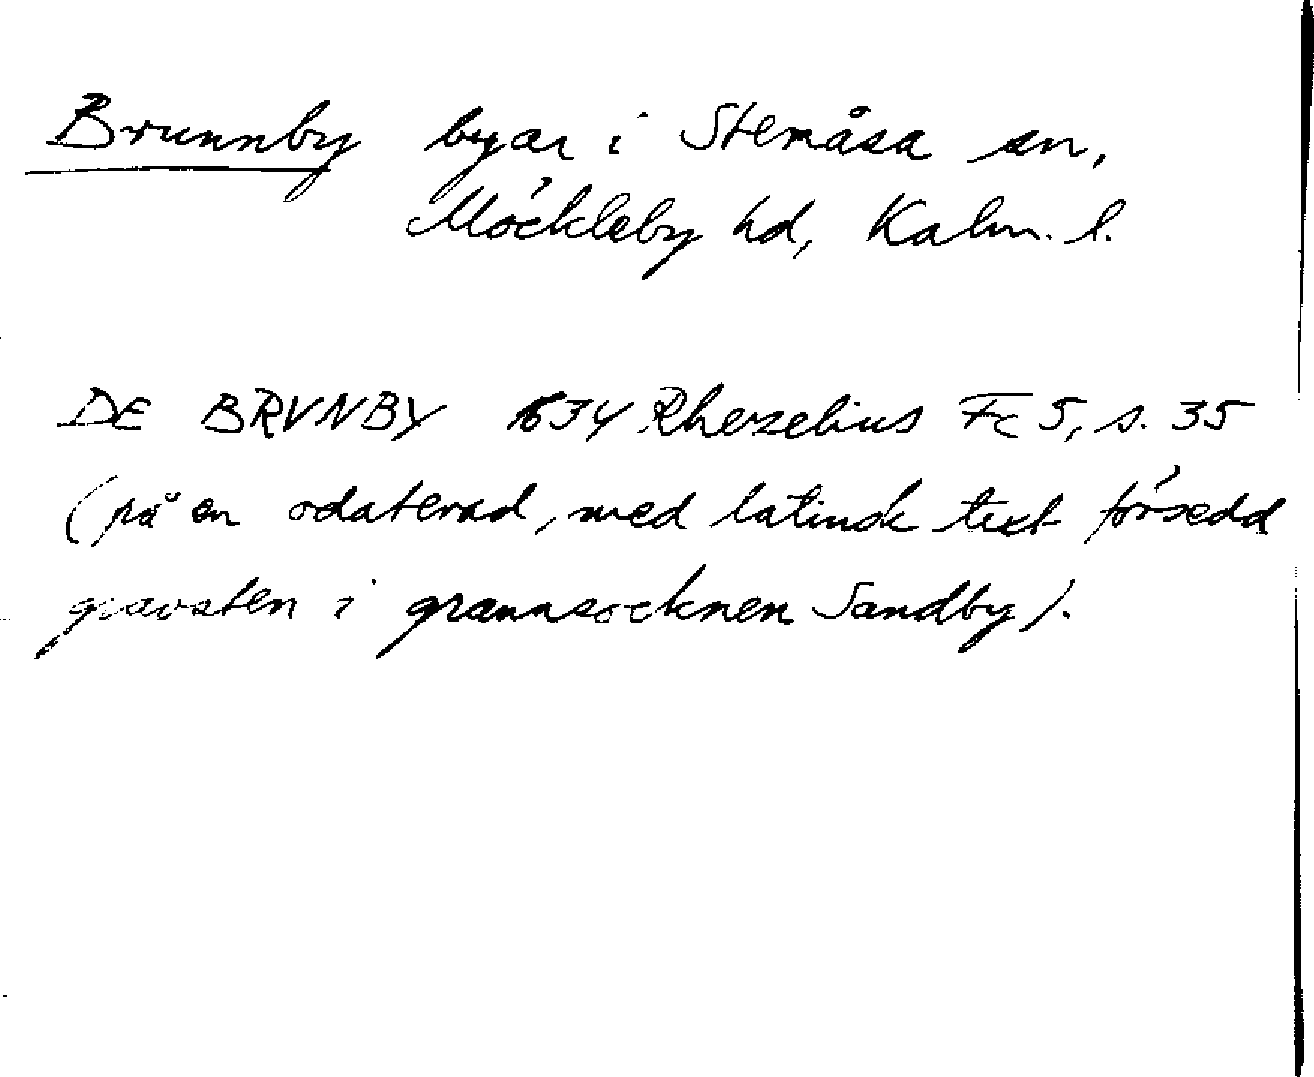 Brunnby byar i Stenåsa sn,
Möckleby hd, Kalm. l.
DE BRVNBY 1634 Rhezelius Fc 5, s. 35
(på en odaterad, med latinsk text försedd
gravsten i grannsocknen Sandby).